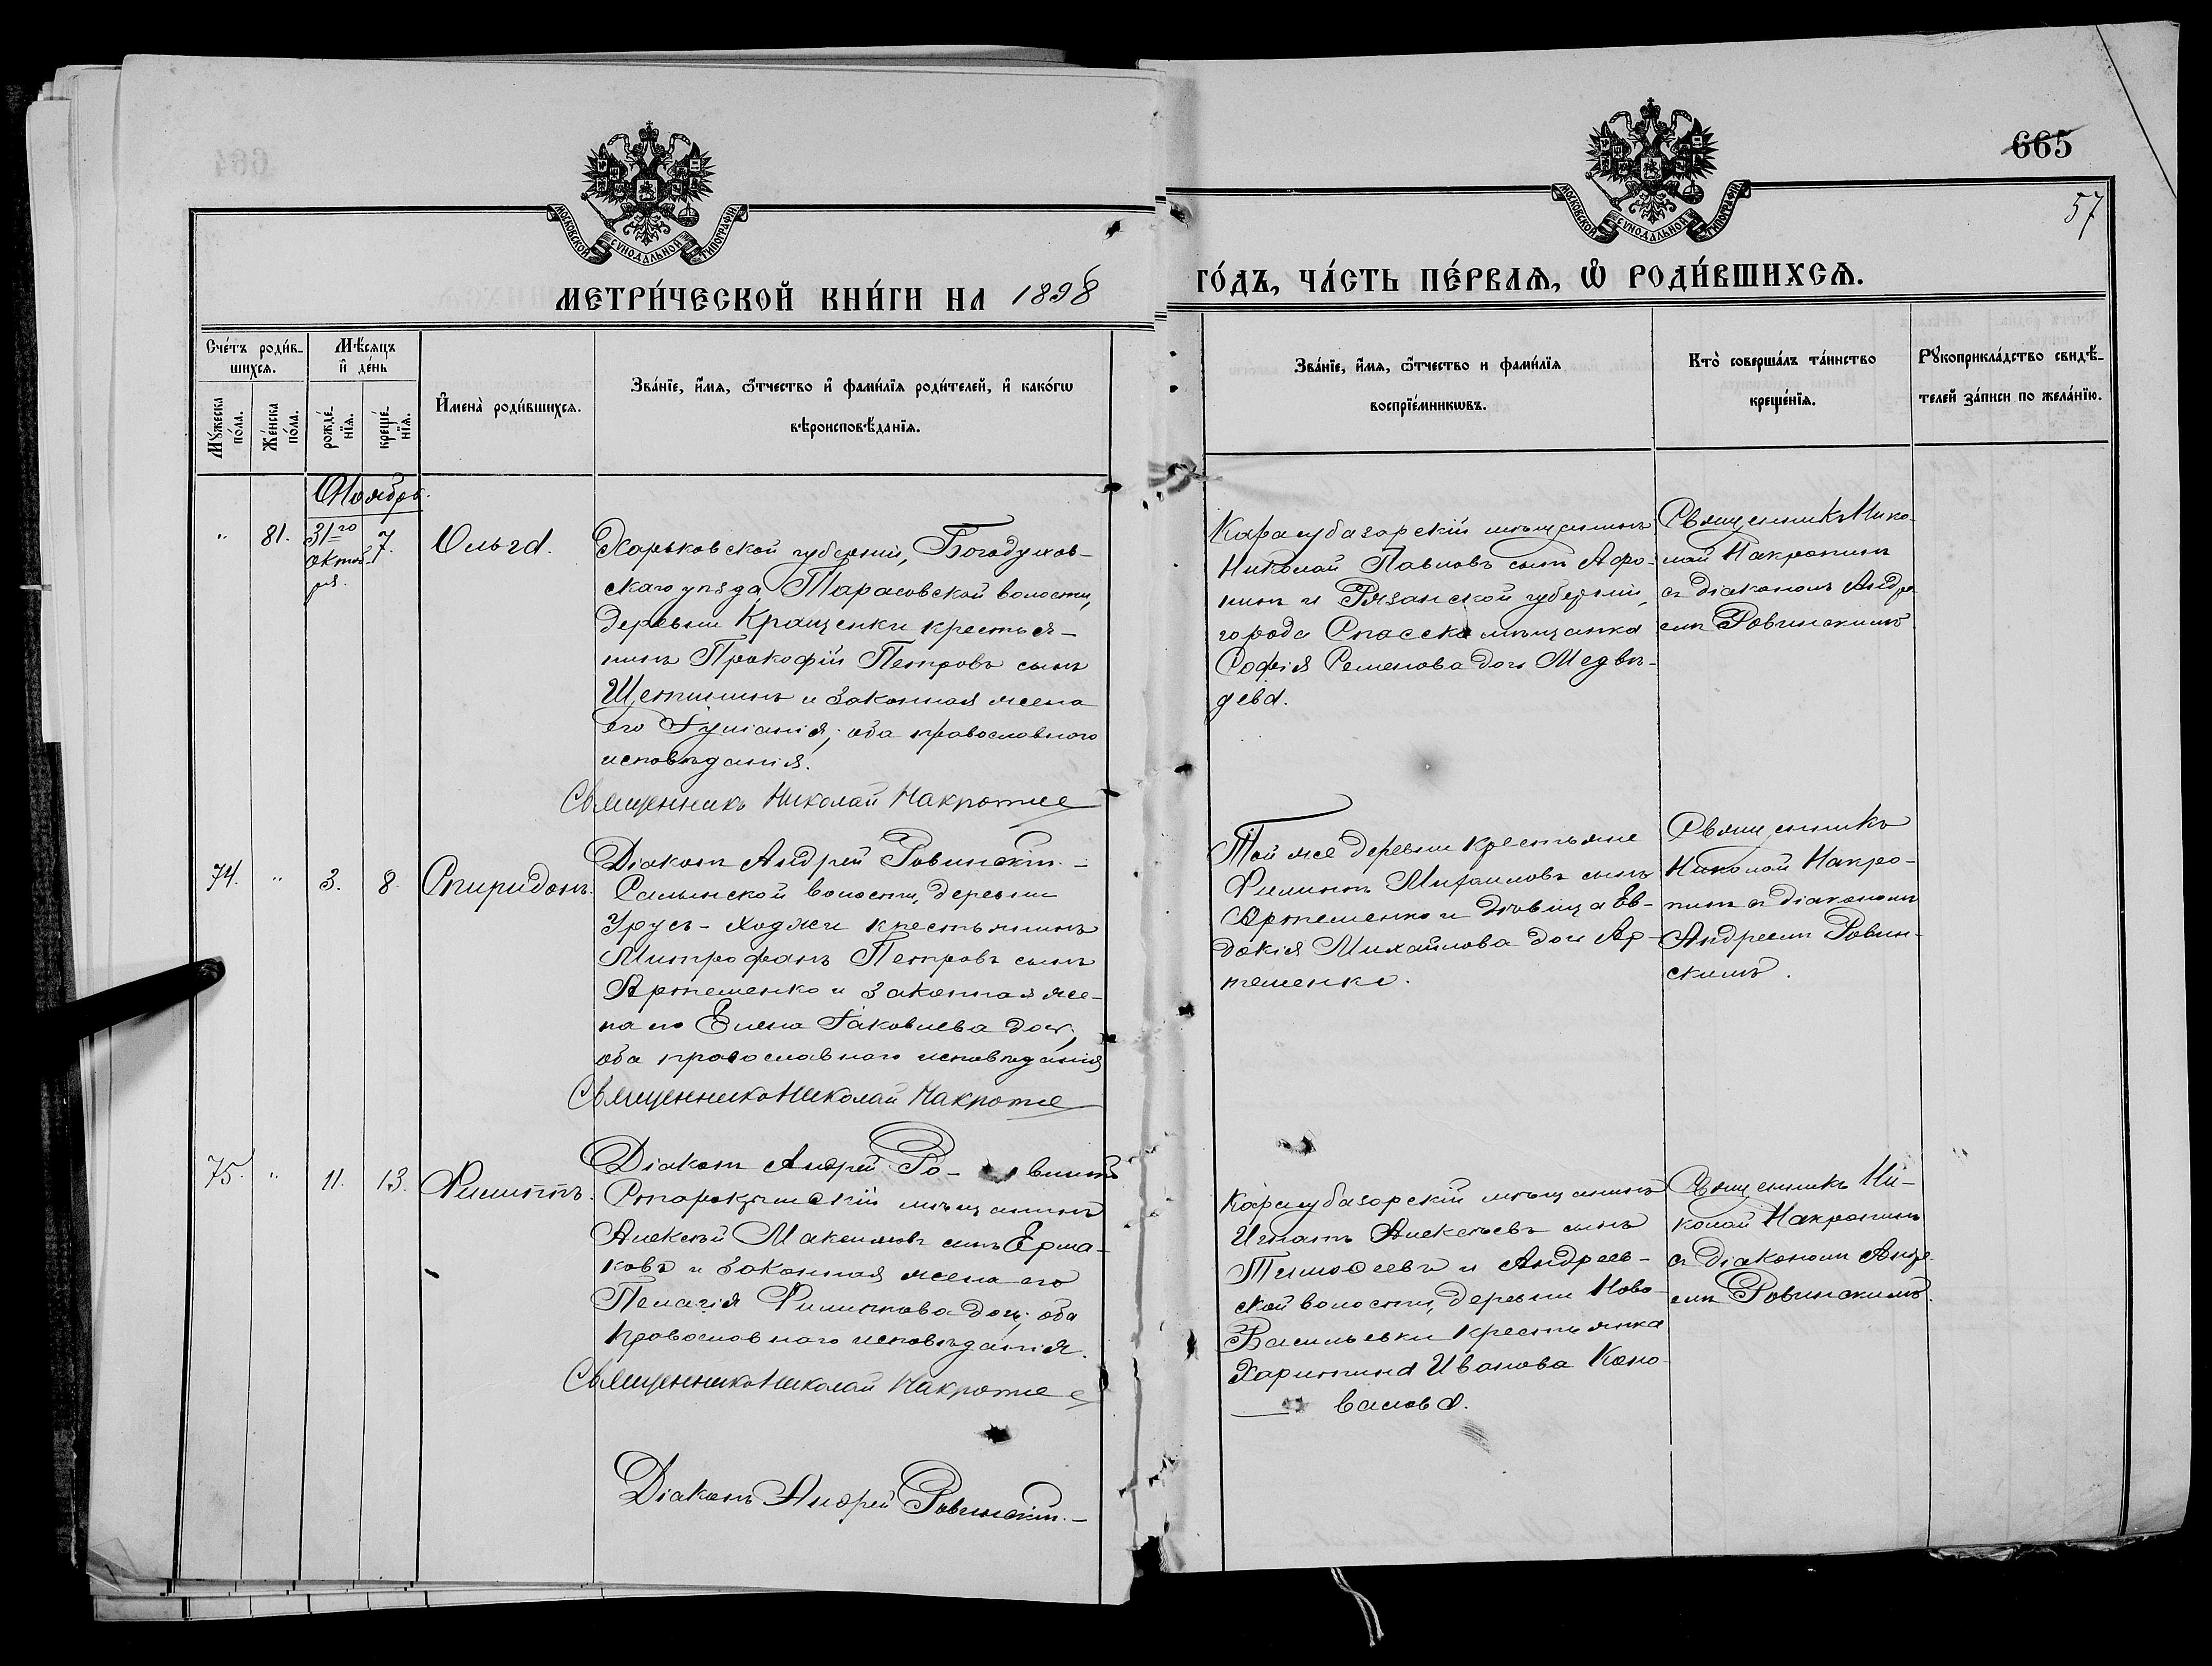 665
57
МОСКОВСКОЙ СѴНОДАЛЬНОЙ ТИПОГРАФІИ
МОСКОВСКОЙ СѴНОДАЛЬНОЙ ТИПОГРАФІИ
МЕТРИ́ЧЕСКОЙ КНИ́ГИ НА 1898 ГО́ДЪ, ЧА́СТЬ ПЕ́РВАѦ, Ѽ РОДИ́ВШИХСѦ.
Сче́тъ роди́в-
шихсѧ.
Мꙋ́жеска по́ла.
Же́нска по́ла.
Мѣ́сѧцъ и҆ де́нь
рожде́-нїѧ.
креще́-нїѧ.
И҆мена̀ роди́вшихсѧ.
Зва́нїе, и҆́мѧ, ѻ҆́тчество и҆ фами́лїѧ роди́телей, и҆ како́гѡ
вѣроисповѣ́данїѧ.
Зва́нїе, и҆́мѧ, ѻ҆́тчество и фами́лїѧ
воспрїе́мникѡвъ.
Кто̀ соверша́лъ та́инство
креще́нїѧ.
Рꙋкоприкла́дство свидѣ́-
телей за́писи по жела́нїю.
Ноябрь.
" 81. 31го октября. 7. Ольга.
Харьковской губерніи, Богодухов-
скаго уѣзда, Тарасовской волости,
деревни Кращенки крестья-
нинъ Прокофій Петровъ сынъ
Щетининъ и законная жена
его Іуліанія; оба православнаго
исповѣданія.
Священникъ Николай Макропие
Діаконъ Андрей Ровинскій.
Карасубазарскій мѣщанинъ
Николай Павловъ сынъ Афо-
нинъ и Рязанской губерніи,
города Спасска мѣщанка
Софія Семенова дочь Медвѣ-
дева.
Священникъ Нико-
лай Макропин
съ діакономъ Андре-
емъ Ровинскимъ
74. " 3. 8. Спиридонъ.
Салынской волости, деревни
Урусъ-Ходжи крестьянинъ
Митрофанъ Петровъ сынъ
Артеменко и законная же-
на его Елена Іаковлева дочь;
оба православнаго исповѣданія
Священникъ Николай Макропие
Діаконъ Андрей Ро- винскій
Той же деревни крестьяне
Филиппъ Михаиловъ сынъ
Артеменко и дѣвица Ев-
докія Михайлова дочь Ар-
теменко.
Священникъ
Николай Макро-
пин съ діакономъ
Андреемъ Ровин-
скимъ.
75. " 11. 13. Филиппъ.
Старокрымскій мѣщанинъ
Алексѣй Максимовъ сынъ Ерма-
ковъ и законная жена его
Пелагія Филиппова дочь; оба
православнаго исповѣданія.
Священникъ Николай Макропие
Діаконъ Андрей Ровинскій.
Карасубазарскій мѣщанинъ
Игнатъ Алексѣевъ сынъ
Тимоѳеевъ и Андреев-
ской волости, деревни Ново-
Васильевки крестьянка
Харитина Иванова Коно-
валова.
Священникъ Ни-
колай Макропин
съ діакономъ Андре-
емъ Ровинскимъ.